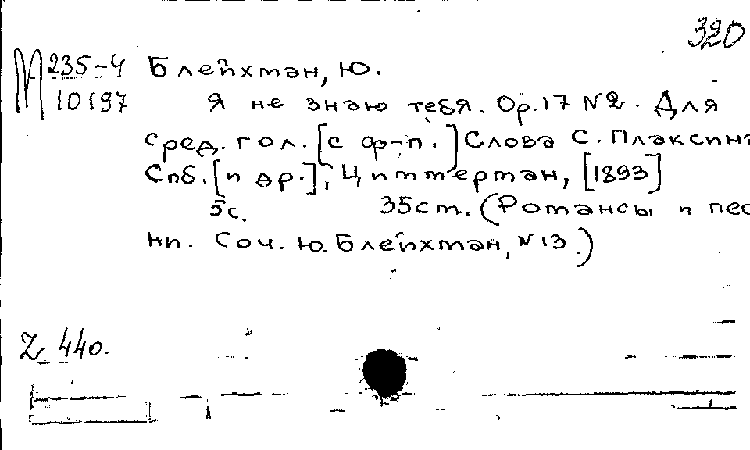 320
М 235-4 Блейхман, Ю.
10197 Я не знаю тебя. Op.17 №2. Для
сред. гол. [с ф-п.] Слова С. Плаксина
Спб. [и др.], Циммерман, [1893]
5с. 35cm. (Романсы и пес
ни. Соч. Ю. Блейхман, №13.)
Z 440.